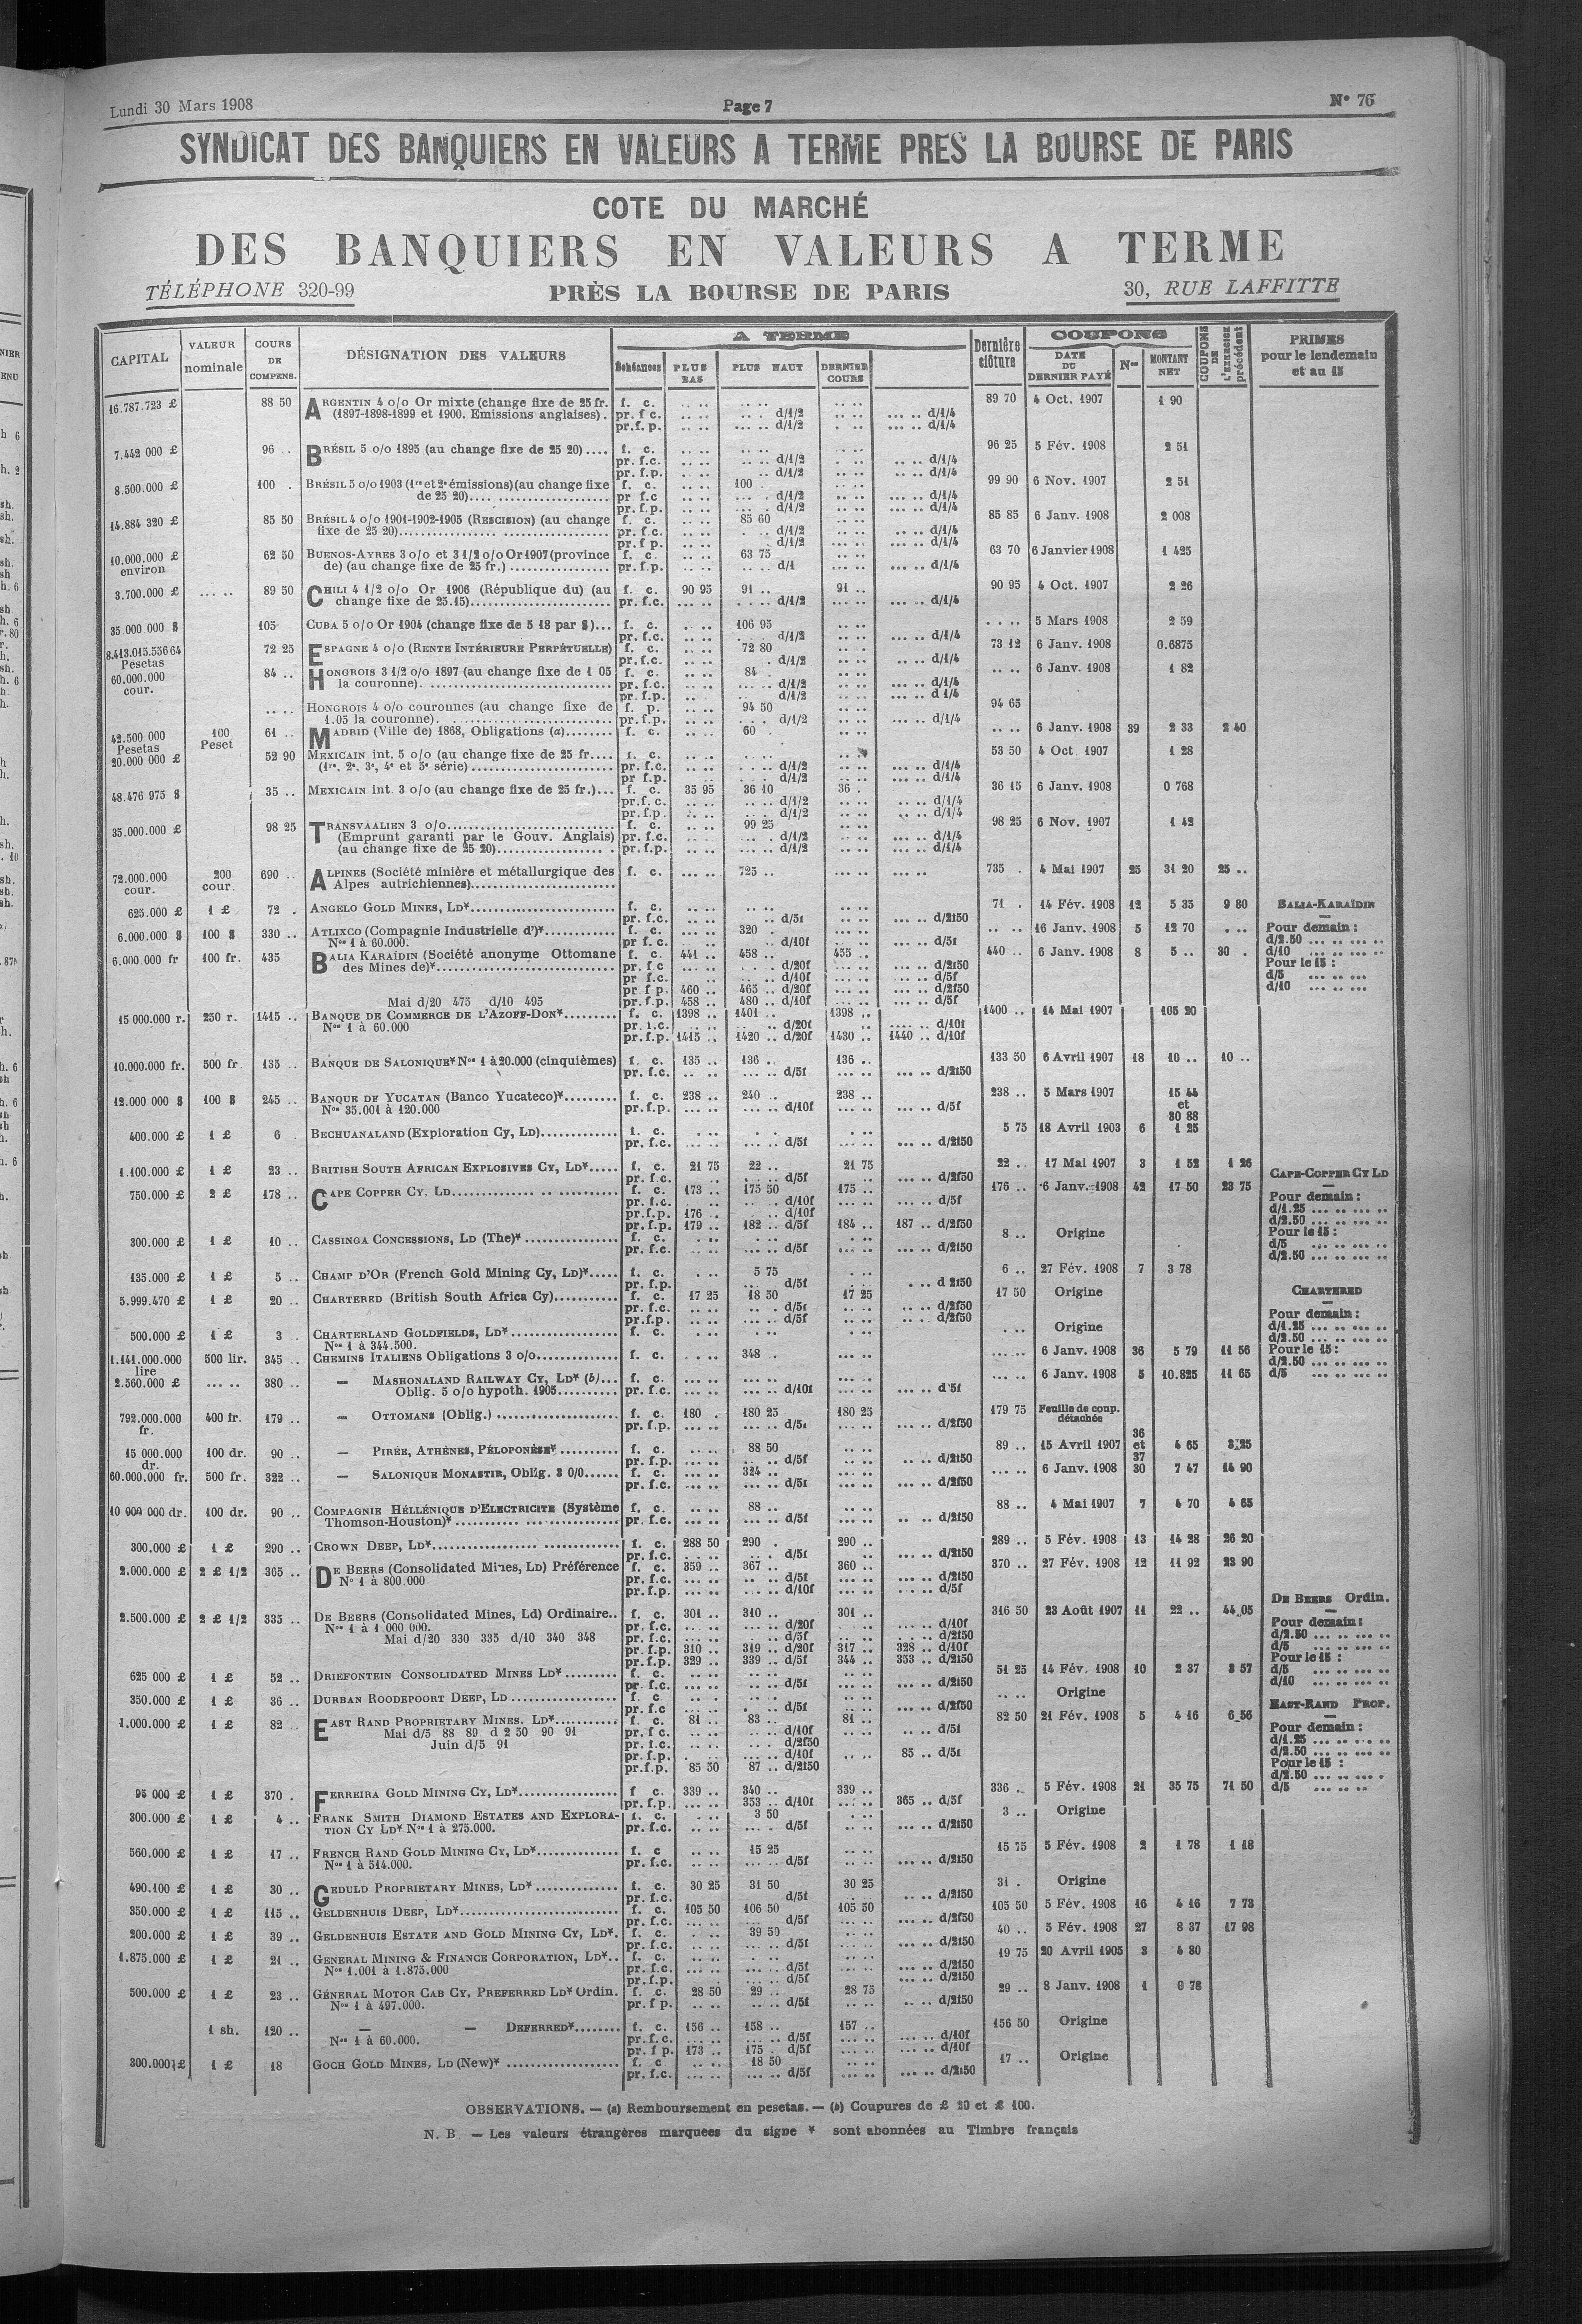 Lundi 30 Mars 1908 Page 7 N° 76
SYNDICAT DES BANQUIERS EN VALEURS A TERME PRES LA BOURSE DE PARIS
COTE DU MARCHÉ
DES BANQUIERS EN VALEURS A TERME
TÉLÉPHONE 320-99 PRÈS LA BOURSE DE PARIS 30, RUE LAFFITTE
CAPITAL VALEUR nominale COURS DE COMPENS. DÉSIGNATION DES VALEURS A TERME Échéances PLUS BAS PLUS HAUT DERNIER COURS Dernière clôture COUPONS DATE DU DERNIER PAYÉ Nos MONTANT NET COUPONS DE L'EXERCICE précédent PRIMES pour le lendemain et au 15
16.787.723 £ 88 50 ARGENTIN 4 o/o Or mixte (change fixe de 25 fr. f. c. 89 70 4 Oct. 1907 1 90
(1897-1898-1899 et 1900. Emissions anglaises). pr. f c. d/1/2 d/1/4
pr.f. p. d/1/2 d/1/4
7.442 000 £ 96 .. BRÉSIL 5 o/o 1895 (au change fixe de 25 20).... f. c. 96 25 5 Fév. 1908 2 51
pr. f.c. d/1/2 d/1/4
pr. f.p. d/1/2 d/1/4
8.500.000 £ 100 . BRÉSIL 5 o/o 1903 (1re et 2e émissions) (au change fixe f. c. 100 . 99 90 6 Nov. 1907 2 51
de 25 20) pr f.c d/1/2 d/1/4
pr. f.p. d/1/2 d/1/4
14.884 320 £ 85 50 BRÉSIL 4 o/o 1901-1902-1905 (RESCISION) (au change f. c. 85 60 85 85 6 Janv. 1908 2 008
fixe de 25 20) pr. f.c. d/1/2 d/1/4
pr.f p. d/1/2 d/1/4
10.000.000 £ environ 62 50 BUENOS-AYRES 3 o/o et 3 1/2 o/o Or 1907 (province f. c. 63 75 63 70 6 Janvier 1908 1 425
de) (au change fixe de 25 fr.) pr.f.p. d/1 d/1/4
3.700.000 £ 89 50 CHILI 4 1/2 o/o Or 1906 (République du) (au f. c. 90 95 91 .. 91 .. 90 95 4 Oct. 1907 2 26
change fixe de 25.15) pr. f.c. d/1/2 d/1/4
35.000 000 $ 105 CUBA 5 o/o Or 1904 (change fixe de 5 18 par $)... f. c. 106 95 5 Mars 1908 2 59
pr. f.c. d/1/2 d/1/4
8.413.015.556 64 Pesetas 72 25 ESPAGNE 4 o/o (RENTE INTÉRIEURE PERPÉTUELLE) f. c. 72 80 73 12 6 Janv. 1908 0.6875
pr. f.c. d/1/2 d/1/4
60.000.000 cour. 84 .. HONGROIS 3 1/2 o/o 1897 (au change fixe de 1 05 f. c. 84 . 6 Janv. 1908 1 82
la couronne). pr. f.c. d/1/2 d/1/4
pr. f.p. d/1/2 d 1/4
HONGROIS 4 o/o couronnes (au change fixe de f. p. 94 50 94 65
1.05 la couronne). pr.f.p. d/1/2 d/1/4
42.500 000 Pesetas 100 Peset 61 .. MADRID (Ville de) 1868, Obligations (a) f. c. 60 . 6 Janv. 1908 39 2 33 2 40
20.000 000 £ 52 90 MEXICAIN int. 5 o/o (au change fixe de 25 fr.... f. c. 53 50 4 Oct. 1907 1 28
(1re, 2e, 3e, 4e et 5e série) pr. f.c. d/1/2 d/1/4
pr f.p. d/1/2 d/1/4
48.476 975 $ 35 .. MEXICAIN int. 3 o/o (au change fixe de 25 fr.)... f. c. 35 95 36 10 36 . 36 15 6 Janv. 1908 0 768
pr.f. c. d/1/2 d/1/4
pr.f.p. d/1/2 d/1/4
35.000.000 £ 98 25 TRANSVAALIEN 3 o/o f. c. 99 25 98 25 6 Nov. 1907 1 42
(Emprunt garanti par le Gouv. Anglais) pr. f.c. d/1/2 d/1/4
(au change fixe de 25 20) pr.f.p. d/1/2 d/1/4
72.000.000 cour. 200 cour. 690 .. ALPINES (Société minière et métallurgique des f. c. 725 .. 735 . 4 Mai 1907 25 31 20 25 ..
Alpes autrichiennes)
625.000 £ 1 £ 72 . ANGELO GOLD MINES, LD* f. c. 71 . 14 Fév. 1908 12 5 35 9 80 BALIA-KARAÏDIN
pr. f.c. d/5f d/2f50
6.000.000 $ 100 $ 330 .. ATLIXCO (Compagnie Industrielle d')* f. c. 320 . 16 Janv. 1908 5 12 70 Pour demain :
Nos 1 à 60.000. pr f. c. d/10f d/5f d/2.50
6.000.000 fr 100 fr. 435 BALIA KARAÏDIN (Société anonyme Ottomane f. c. 441 .. 458 .. 455 .. 440 .. 6 Janv. 1908 8 5 .. 30 . d/10
des Mines de)* pr. f c d/20f d/2f50 Pour le 15 :
pr f.c. d/10f d/5f d/5
pr f p. 460 .. 465 .. d/20f d/2f50 d/10
Mai d/20 475 d/10 495 pr.f.p. 458 .. 480 .. d/10f d/5f
15 000.000 r. 250 r. 1415 .. BANQUE DE COMMERCE DE L'AZOFF-DON* f. c. 1398 .. 1401 .. 1398 .. 1400 .. 14 Mai 1907 105 20
Nos 1 à 60.000 pr. f.c. d/20f d/10f
pr.f.p. 1415 .. 1420 .. d/20f 1430 .. 1440 .. d/10f
10.000.000 fr. 500 fr 135 .. BANQUE DE SALONIQUE* Nos 1 à 20.000 (cinquièmes) f. c. 135 .. 136 .. 136 .. 133 50 6 Avril 1907 18 10 .. 10 ..
pr. f.c. d/5f d/2f50
12.000 000 $ 100 $ 245 .. BANQUE DE YUCATAN (Banco Yucateco)* f. c. 238 .. 240 .. 238 .. 238 .. 5 Mars 1907 15 44 et 30 88
Nos 35.001 à 120.000 pr.f.p. d/10f d/5f
400.000 £ 1 £ 6 BECHUANALAND (Exploration Cy, LD) f. c. 5 75 18 Avril 1903 6 1 25
pr. f.c. d/5f d/2f50
1.100.000 £ 1 £ 23 .. BRITISH SOUTH AFRICAN EXPLOSIVES CY, LD* f. c. 21 75 22 .. 21 75 22 .. 17 Mai 1907 3 1 52 1 26 CAPE-COPPER CY LD
pr f c. d/5f d/2f50
750.000 £ 2 £ 178 .. CAPE COPPER CY. LD f. c. 173 .. 175 50 175 .. 176 .. 6 Janv. 1908 42 17 50 23 75 Pour demain :
pr. f.c. d/10f d/5f d/1.25
pr.f.p. 176 . d/10f d/2.50
pr.f.p. 179 .. 182 .. d/5f 184 .. 187 .. d/2f50 Pour le 15 :
300.000 £ 1 £ 10 .. CASSINGA CONCESSIONS, LD (The)* f. c. 8 .. Origine d/5
pr. f.c. d/5f d/2f50 d/2.50
135.000 £ 1 £ 5 .. CHAMP D'OR (French Gold Mining Cy, LD)* f. c. 5 75 6 .. 27 Fév. 1908 7 3 78
pr. f.p. d/5f d 2f50
5.999.470 £ 1 £ 20 .. CHARTERED (British South Africa Cy) f. c. 17 25 18 50 17 25 17 50 Origine CHARTERED
pr. f.c. d/5f d/2f50 Pour demain :
pr.f.p. d/5f d/2f50 d/1.25
500.000 £ 1 £ 3 . CHARTERLAND GOLDFIELDS, LD* f. c. Origine d/2.50
Nos 1 à 344.500. Pour le 15 :
1.141.000.000 lire 500 lir. 345 .. CHEMINS ITALIENS Obligations 3 o/o f. c. 348 . 6 Janv. 1908 36 5 79 11 56 d/2.50
2.560.000 £ 380 .. — MASHONALAND RAILWAY CY, LD* (b)... f. c. 6 Janv. 1908 5 10.825 11 65 d/5
Oblig. 5 o/o hypoth. 1905 pr. f.c. d/10f d 5f
792.000.000 fr. 400 fr. 179 .. — OTTOMANS (Oblig.) f. c. 180 . 180 25 180 25 179 75 Feuille de coup. détachée
pr. f.p. d/5f d/2f50
15 000.000 dr. 100 dr. 90 .. — PIRÉE, ATHÈNES, PÉLOPONÈSE* f. c. 88 50 89 .. 15 Avril 1907 36 et 37 4 65 3 25
pr. f.p. d/5f d/2f50
60.000.000 fr. 500 fr. 322 .. — SALONIQUE MONASTIR, Oblig. 3 0/0 f. c. 324 .. 6 Janv. 1908 30 7 47 14 90
pr. f.c. d/5f d/2f50
10 000 000 dr. 100 dr. 90 .. COMPAGNIE HÉLLÉNIQUE D'ELECTRICITE (Système f. c. 88 .. 88 .. 4 Mai 1907 7 4 70 4 65
Thomson-Houston)* pr. f.c. d/5f d/2f50
300.000 £ 1 £ 290 .. CROWN DEEP, LD* f. c. 288 50 290 . 290 .. 289 .. 5 Fév. 1908 13 14 28 26 20
pr. f.c. d/5f d/2f50
2.000.000 £ 2 £ 1/2 365 .. DE BEERS (Consolidated Mines, LD) Préférence f. c. 359 .. 367 .. 360 .. 370 .. 27 Fév. 1908 12 11 92 23 90
N° 1 à 800.000 pr. f.c. d/5f d/2f50
pr.f.p. d/10f d/5f
2.500.000 £ 2 £ 1/2 335 .. DE BEERS (Consolidated Mines, Ld) Ordinaire.. f. c. 301 .. 310 .. 301 .. 316 50 23 Août 1907 11 22 .. 44 05 DE BEERS Ordin.
Nos 1 à 1 000 000. pr. f.c. d/20f d/10f Pour demain :
Mai d/20 330 335 d/10 340 348 pr. f.c. d/5f d/2f50 d/2.50
pr. f.p. 310 .. 319 .. d/20f 317 .. 328 .. d/10f d/5
pr. f.p. 329 .. 339 .. d/5f 344 .. 353 .. d/2f50 Pour le 15 :
625 000 £ 1 £ 52 .. DRIEFONTEIN CONSOLIDATED MINES LD* f. c. 51 25 14 Fév. 1908 10 2 37 3 57 d/5
pr. f.c. d/5f d/2f50 d/10
350.000 £ 1 £ 36 .. DURBAN ROODEPOORT DEEP, LD f. c Origine
pr. f.c d/5f d/2f50 EAST-RAND PROP.
1.000.000 £ 1 £ 82 .. EAST RAND PROPRIETARY MINES, LD* f. c. 81 .. 83 .. 81 .. 82 50 21 Fév. 1908 5 4 16 6 56
Mai d/5 88 89 d 2 50 90 91 pr. f c. d/10f d/5f Pour demain :
Juin d/5 91 pr. f.c. d/2f50 d/1.25
pr. f.p. d/10f 85 .. d/5f d/2.50
pr.f.p. 85 50 87 .. d/2f50 Pour le 15 :
95 000 £ 1 £ 370 . FERREIRA GOLD MINING CY, LD* f c. 339 .. 340 .. 339 .. 336 .. 5 Fév. 1908 21 35 75 71 50 d/2.50
pr. f.p. 353 .. d/10f 365 .. d/5f d/5
300.000 £ 1 £ 4 .. FRANK SMITH DIAMOND ESTATES AND EXPLORA- f. c. 3 50 3 .. Origine
TION CY LD* Nos 1 à 275.000. pr. f.c. d/5f d/2f50
560.000 £ 1 £ 17 .. FRENCH RAND GOLD MINING CY, LD* f. c 15 25 15 75 5 Fév. 1908 2 1 78 1 18
Nos 1 à 514.000. pr. f.c. d/5f d/2f50
490.100 £ 1 £ 30 .. GEDULD PROPRIETARY MINES, LD* f. c. 30 25 31 50 30 25 31 . Origine
pr. f.c. d/5f d/2f50
350.000 £ 1 £ 115 .. GELDENHUIS DEEP, LD* f. c. 105 50 106 50 105 50 105 50 5 Fév. 1908 16 4 16 7 73
pr. f.c. d/5f d/2f50
200.000 £ 1 £ 39 .. GELDENHUIS ESTATE AND GOLD MINING CY, LD*. f. c. 39 50 40 .. 5 Fév. 1908 27 8 37 17 98
pr. f.c. d/5f d/2f50
1.875.000 £ 1 £ 21 .. GENERAL MINING & FINANCE CORPORATION, LD*.. f. c. 19 75 20 Avril 1905 3 4 80
Nos 1.001 à 1.875.000 pr. f.c. d/5f d/2f50
pr.f.p. d/5f d/2f50
500.000 £ 1 £ 23 .. GÉNÉRAL MOTOR CAB CY, PREFERRED LD* Ordin. f. c. 28 50 29 .. 28 75 29 .. 8 Janv. 1908 1 0 78
Nos 1 à 497.000. pr. f p. d/5f d/2f50
1 sh. 120 .. — — DEFERRED* f. c. 156 .. 158 .. 157 .. 156 50 Origine
Nos 1 à 60.000. pr. f. c. d/5f d/10f
pr. f p. 173 .. 175 . d/5f d/10f
300.000 £ 1 £ 18 GOCH GOLD MINES, LD (New)* f. c 18 50 17 .. Origine
pr. f.c. d/5f d/2f50
OBSERVATIONS. — (a) Remboursement en pesetas. — (b) Coupures de £ 20 et £ 100.
N. B. — Les valeurs étrangères marquees du signe * sont abonnées au Timbre français